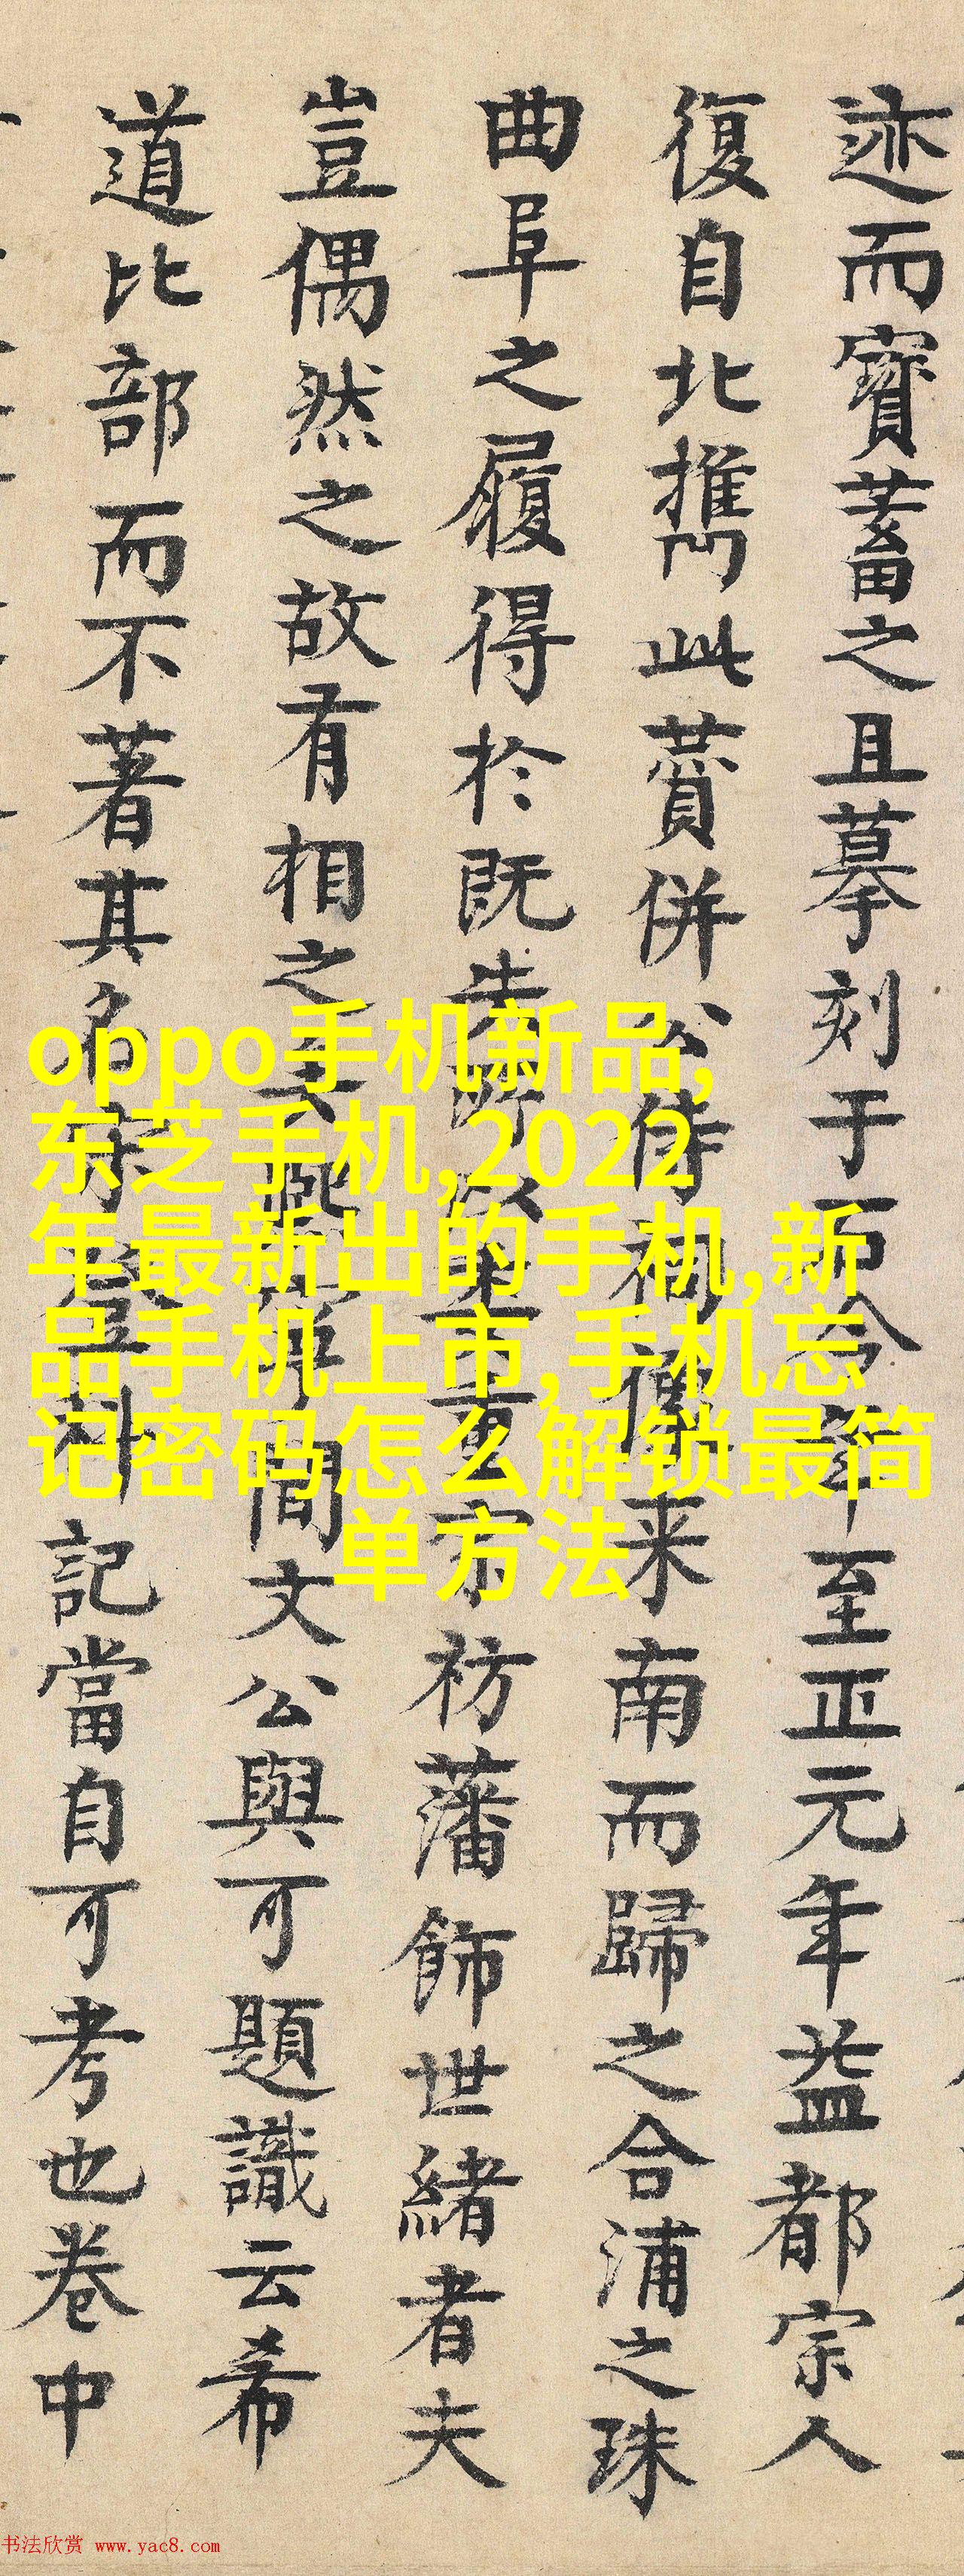 迹而寳蓄之且摹刻于石今年至正元年益都宗人
復自北擕此賛併公侍祠像来南而歸之合浦之珠
曲阜之履得於既失所以重宗祊藩飾世緒者夫
豈偶然之故有相之矣熙寧間文公與可題識云希
道比部而不著其名宋登科記當自可考也卷中
oppo手机新品,
东芝手机,2022
年最新出的手机,新
品手机上市,手机忘
记密码怎么解锁最简
单方法
书法欣赏 www.yac8.com